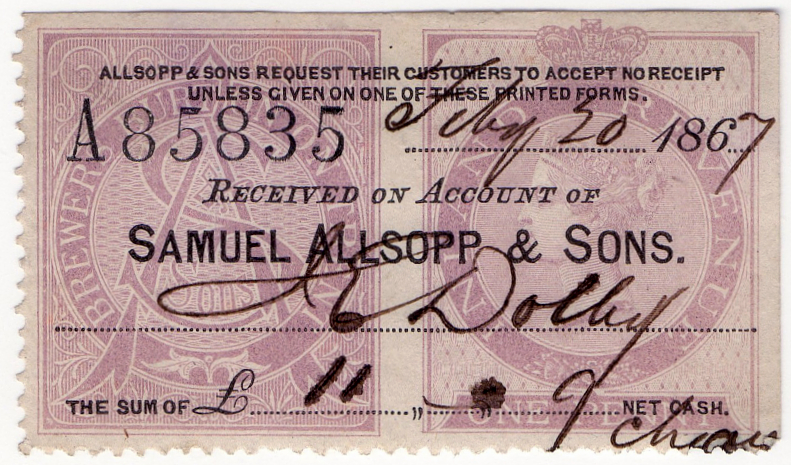 ALLSOPP & SONS REQUEST THEIR CUSTOMERS TO ACCEPT NO RECEIPT
UNLESS GIVEN ON ONE OF THESE PRINTED FORMS.
A85835
Feby 20 1867
RECEIVED ON ACCOUNT OF
SAMUEL ALLSOPP & SONS.
Dolby
THE SUM OF £ 11 „ „ 9 NET CASH.